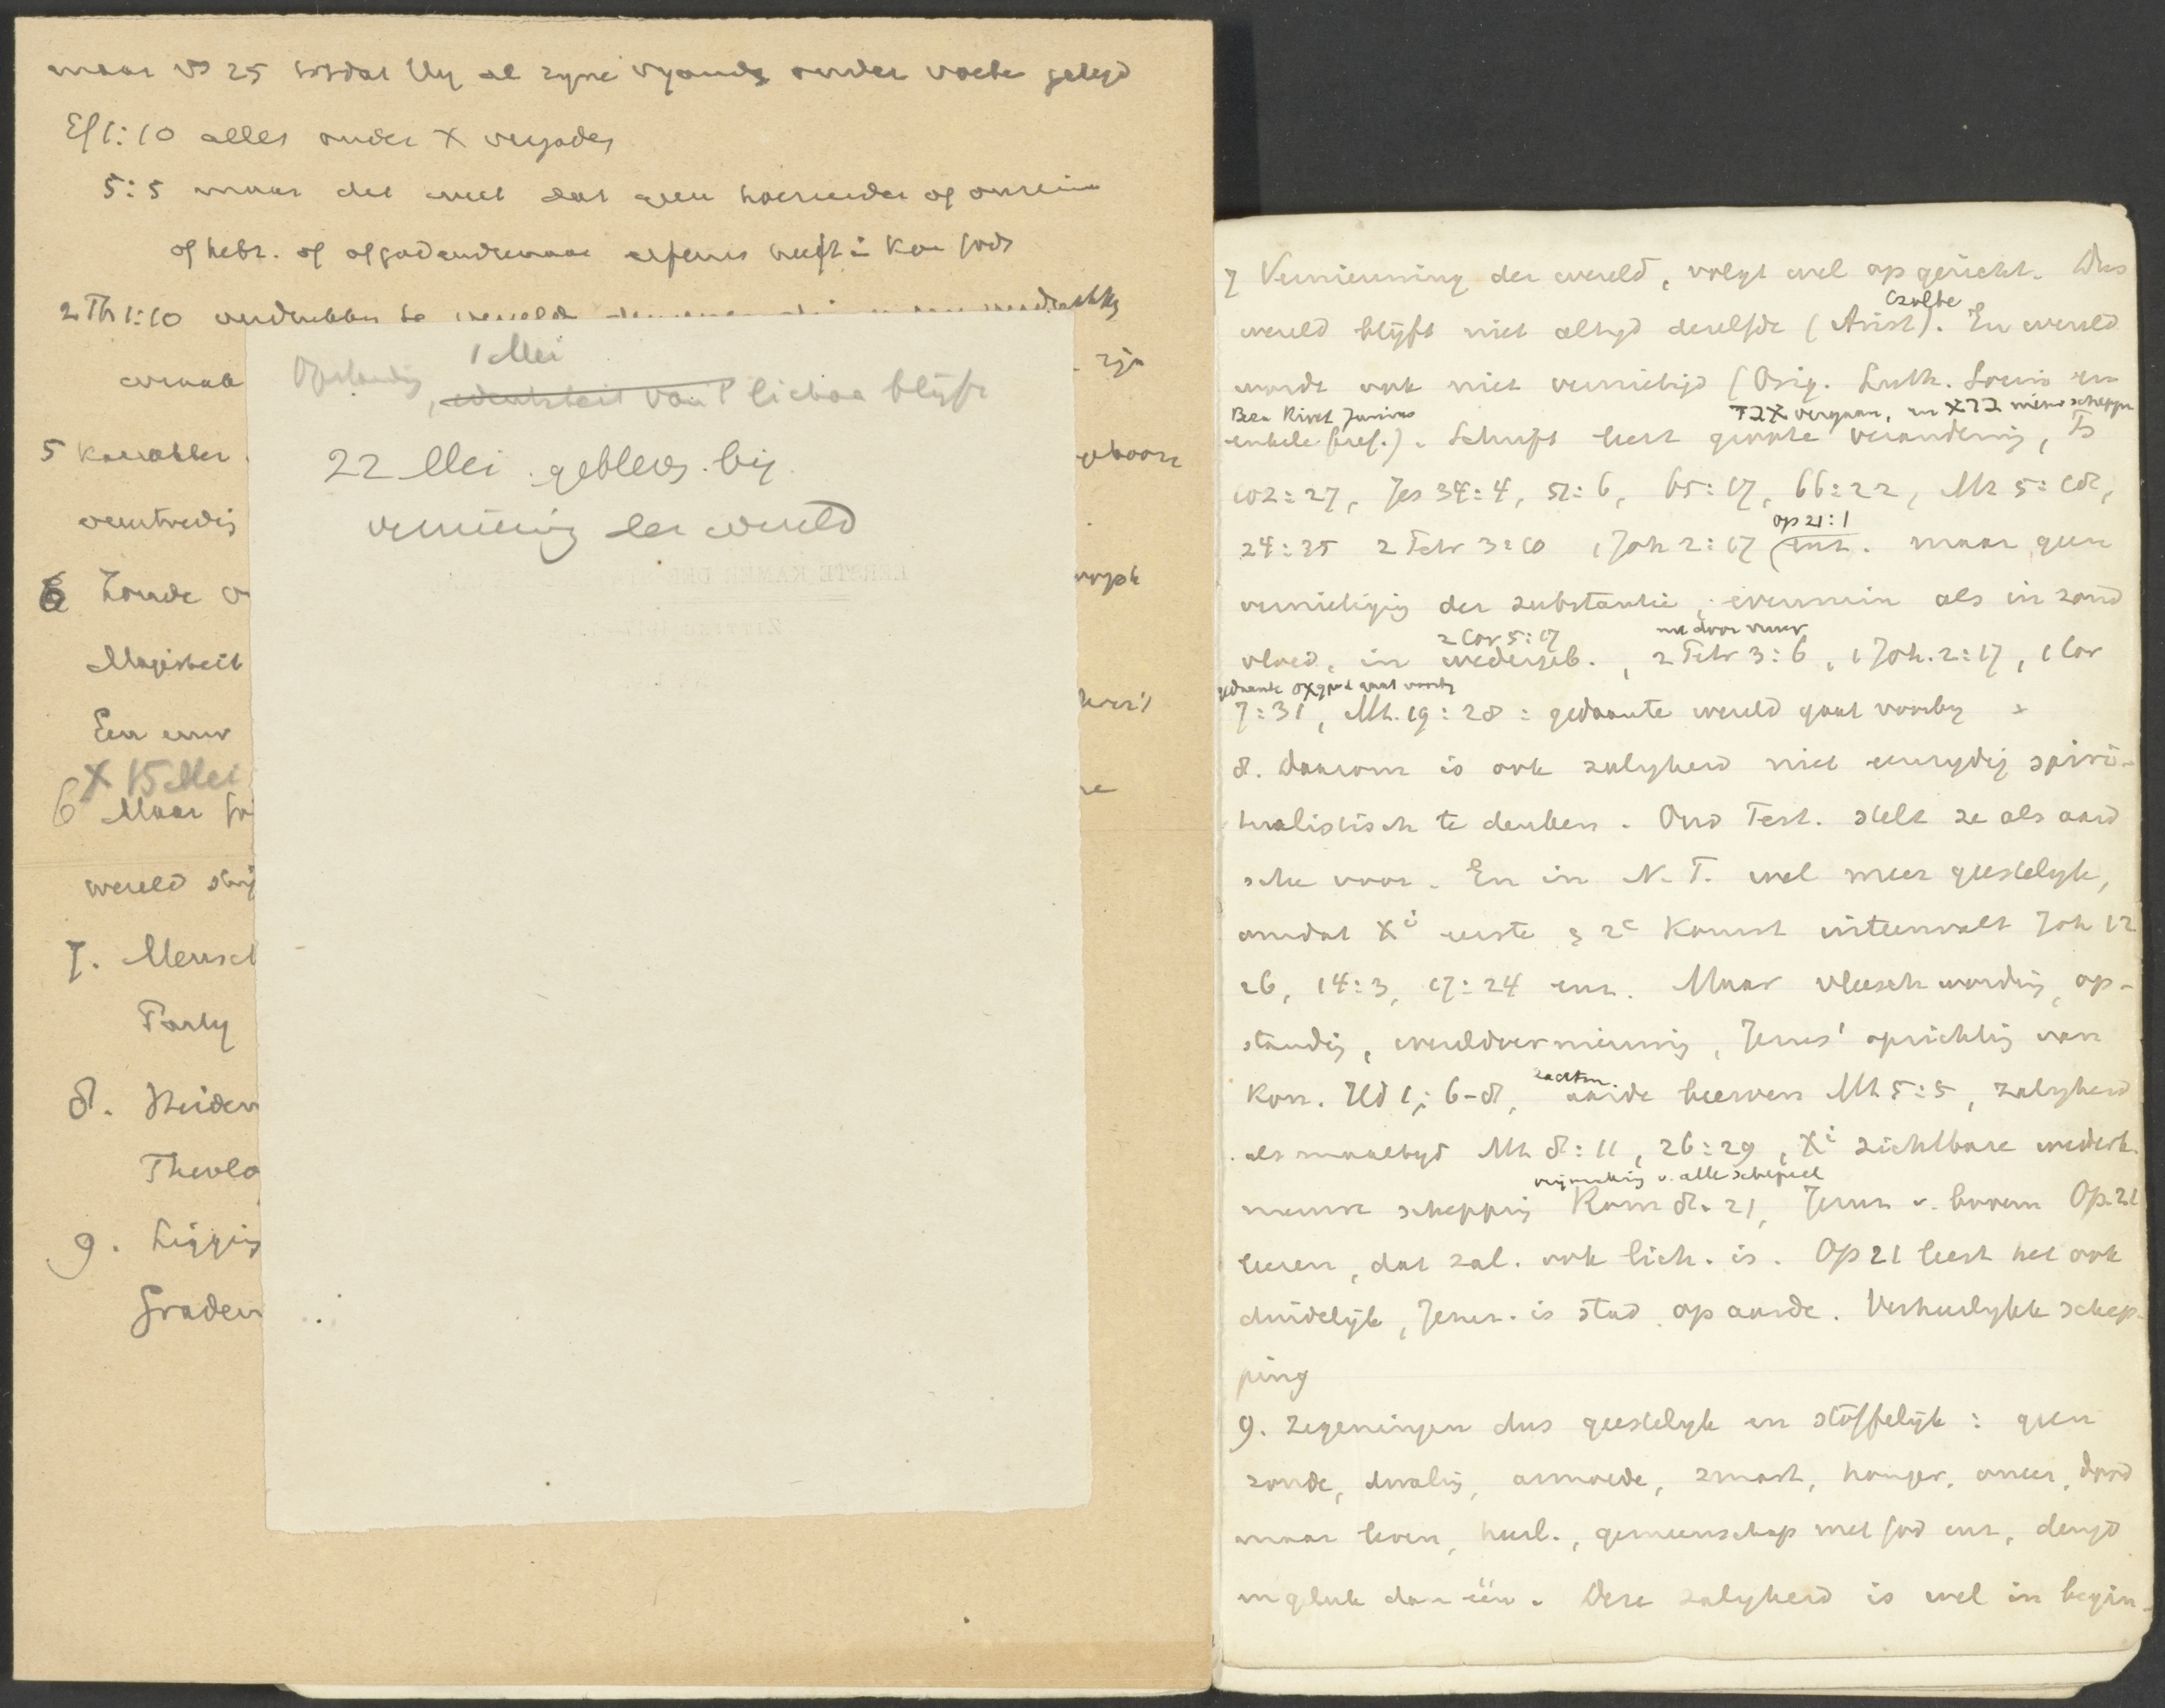 maar vs 25 totdat Hij al zyne vyands onder voeten gelegd
Ef 1:10 alles onder X vergader
5:5 maar dit weet dat geen hoereerder of onrein
of hebz. of afgodendienaar erfenis heeft in Kon Gods
2 Th 1:10
zijn
5 Karakter
geboorte
verntredig
6 Zonde
Majesteit
Een eeuw
X 15 Mei
6 Maar
wereld
7. Mensch
Party
8. Heiden
Theolo
9. Ligging
Graden
1 Mei
Opstanding, identiteit van 't lichaa blijft
22 Mei gebleven bij
vernieuwing der wereld
EERSTE KAMER DER
ZITTING
7 Vernieuwing der wereld, volgt wel op gericht. Dus
Czolbe
wereld blijft niet altyd dezelfde (Arist). En wereld
wordt ook niet vernietigd (Orig. Luth. Socin en
Beza Rivet Junius
72X vergaan, en X22 nieuwe scheppn
enkele Gref.). Schrift leert groote verandering, Ps
102:27, Jes 34:4, 51:6, 65:17, 66:22, Mt 5:18,
op 21:1
24:35 2 Petr 3:10 1 Joh 2:17 enz. maar geen
vernietigig der substantie, evenmin als in zond
2 Cor 5:17
nu door vuur
vloed, in wedergeb., 2 Petr 3:6, 1 Joh. 2:17, 1 Cor
gedaante gaat voorby
7:31, Mt. 19:28: gedaante wereld gaat voorby x
8. Daarom is ook zalygheid niet eenzydig spiri-
tualistisch te denken. Oud Test. stelt ze als aard
sche voor. En in N.T. wel meer geestelyk,
omdat Xi eerste & 2e Komst uiteenvalt Joh 12
26, 14:3, 17:24 enz. Maar vleeschwording, op-
standig, wereldvernieuwing, Jezus' oprichtig van
zachtm.
Kon. Hd 1:6-8, aarde beerven Mt 5:5, zalygheid
als maaltyd Mt 8:11, 26:29, Xi zichtbare wederk.
vrijmaking v. alle schepsel
nieuwe schepping Rom 8:21, Jeruz v. boven Op. 21
leeren, dat zal. ook lich. is. Op 21 leert het ook
duidelijk, Jeruz. is stad op aarde. Verheerlykte schep-
ping
9. Zegeningen dus geestelyk en stoffelijk: geen
zonde, dwaling, armoede, smart, honger, oneer, dood
maar leven, heerl., gemeenschap met God enz, deugd
en geluk dan één. Deze zalygheid is wel in begin-